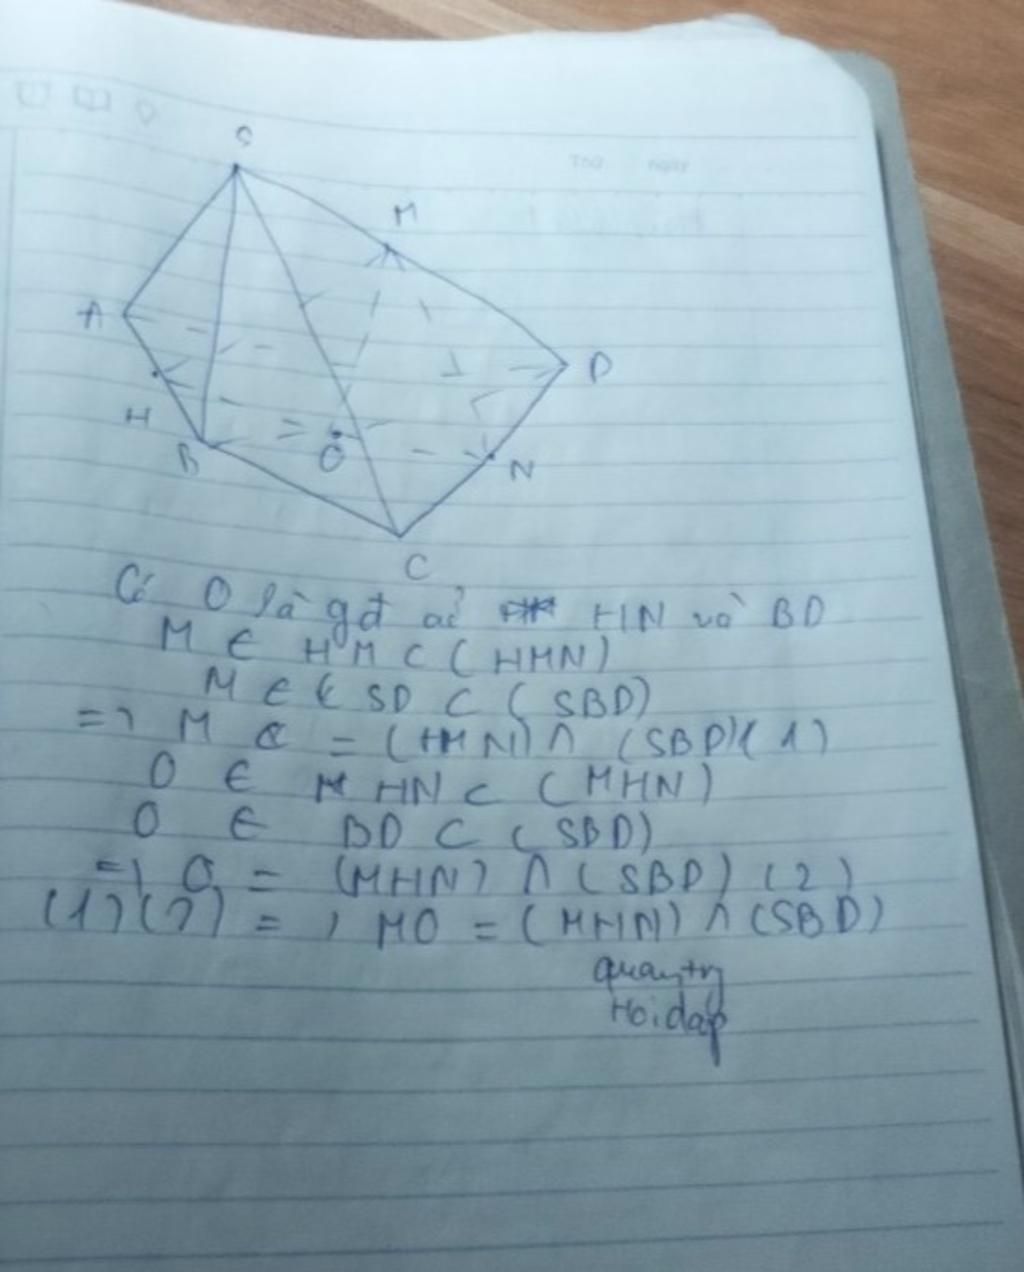 S
M
A
D
H
B
O
N
C
Có O là gđ củ HN và BD
M ∈ HM ⊂ (HMN)
M ∈ SD ⊂ (SBD)
=> M ∈ = (HMN) ∩ (SBD) (1)
O ∈ HN ⊂ (MHN)
O ∈ BD ⊂ (SBD)
=> O = (MHN) ∩ (SBD) (2)
(1) (2) => MO = (MHN) ∩ (SBD)
Hoidap